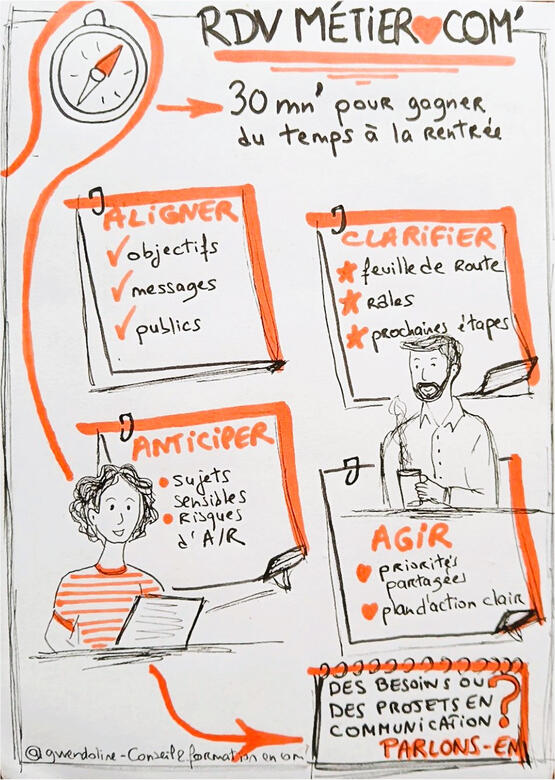 RDV MÉTIER COM'
30 mn' pour gagner
du temps à la rentrée
ALIGNER
objectifs
messages
publics
CLARIFIER
feuille de Route
Rôles
prochaines étapes
ANTICIPER
sujets
sensibles
Risques
d'A/R
AGIR
priorités
partagées
plan d'action clair
DES BESOINS OU
DES PROJETS EN
COMMUNICATION ?
PARLONS-EN
@gwendoline-Conseil&formation en com'